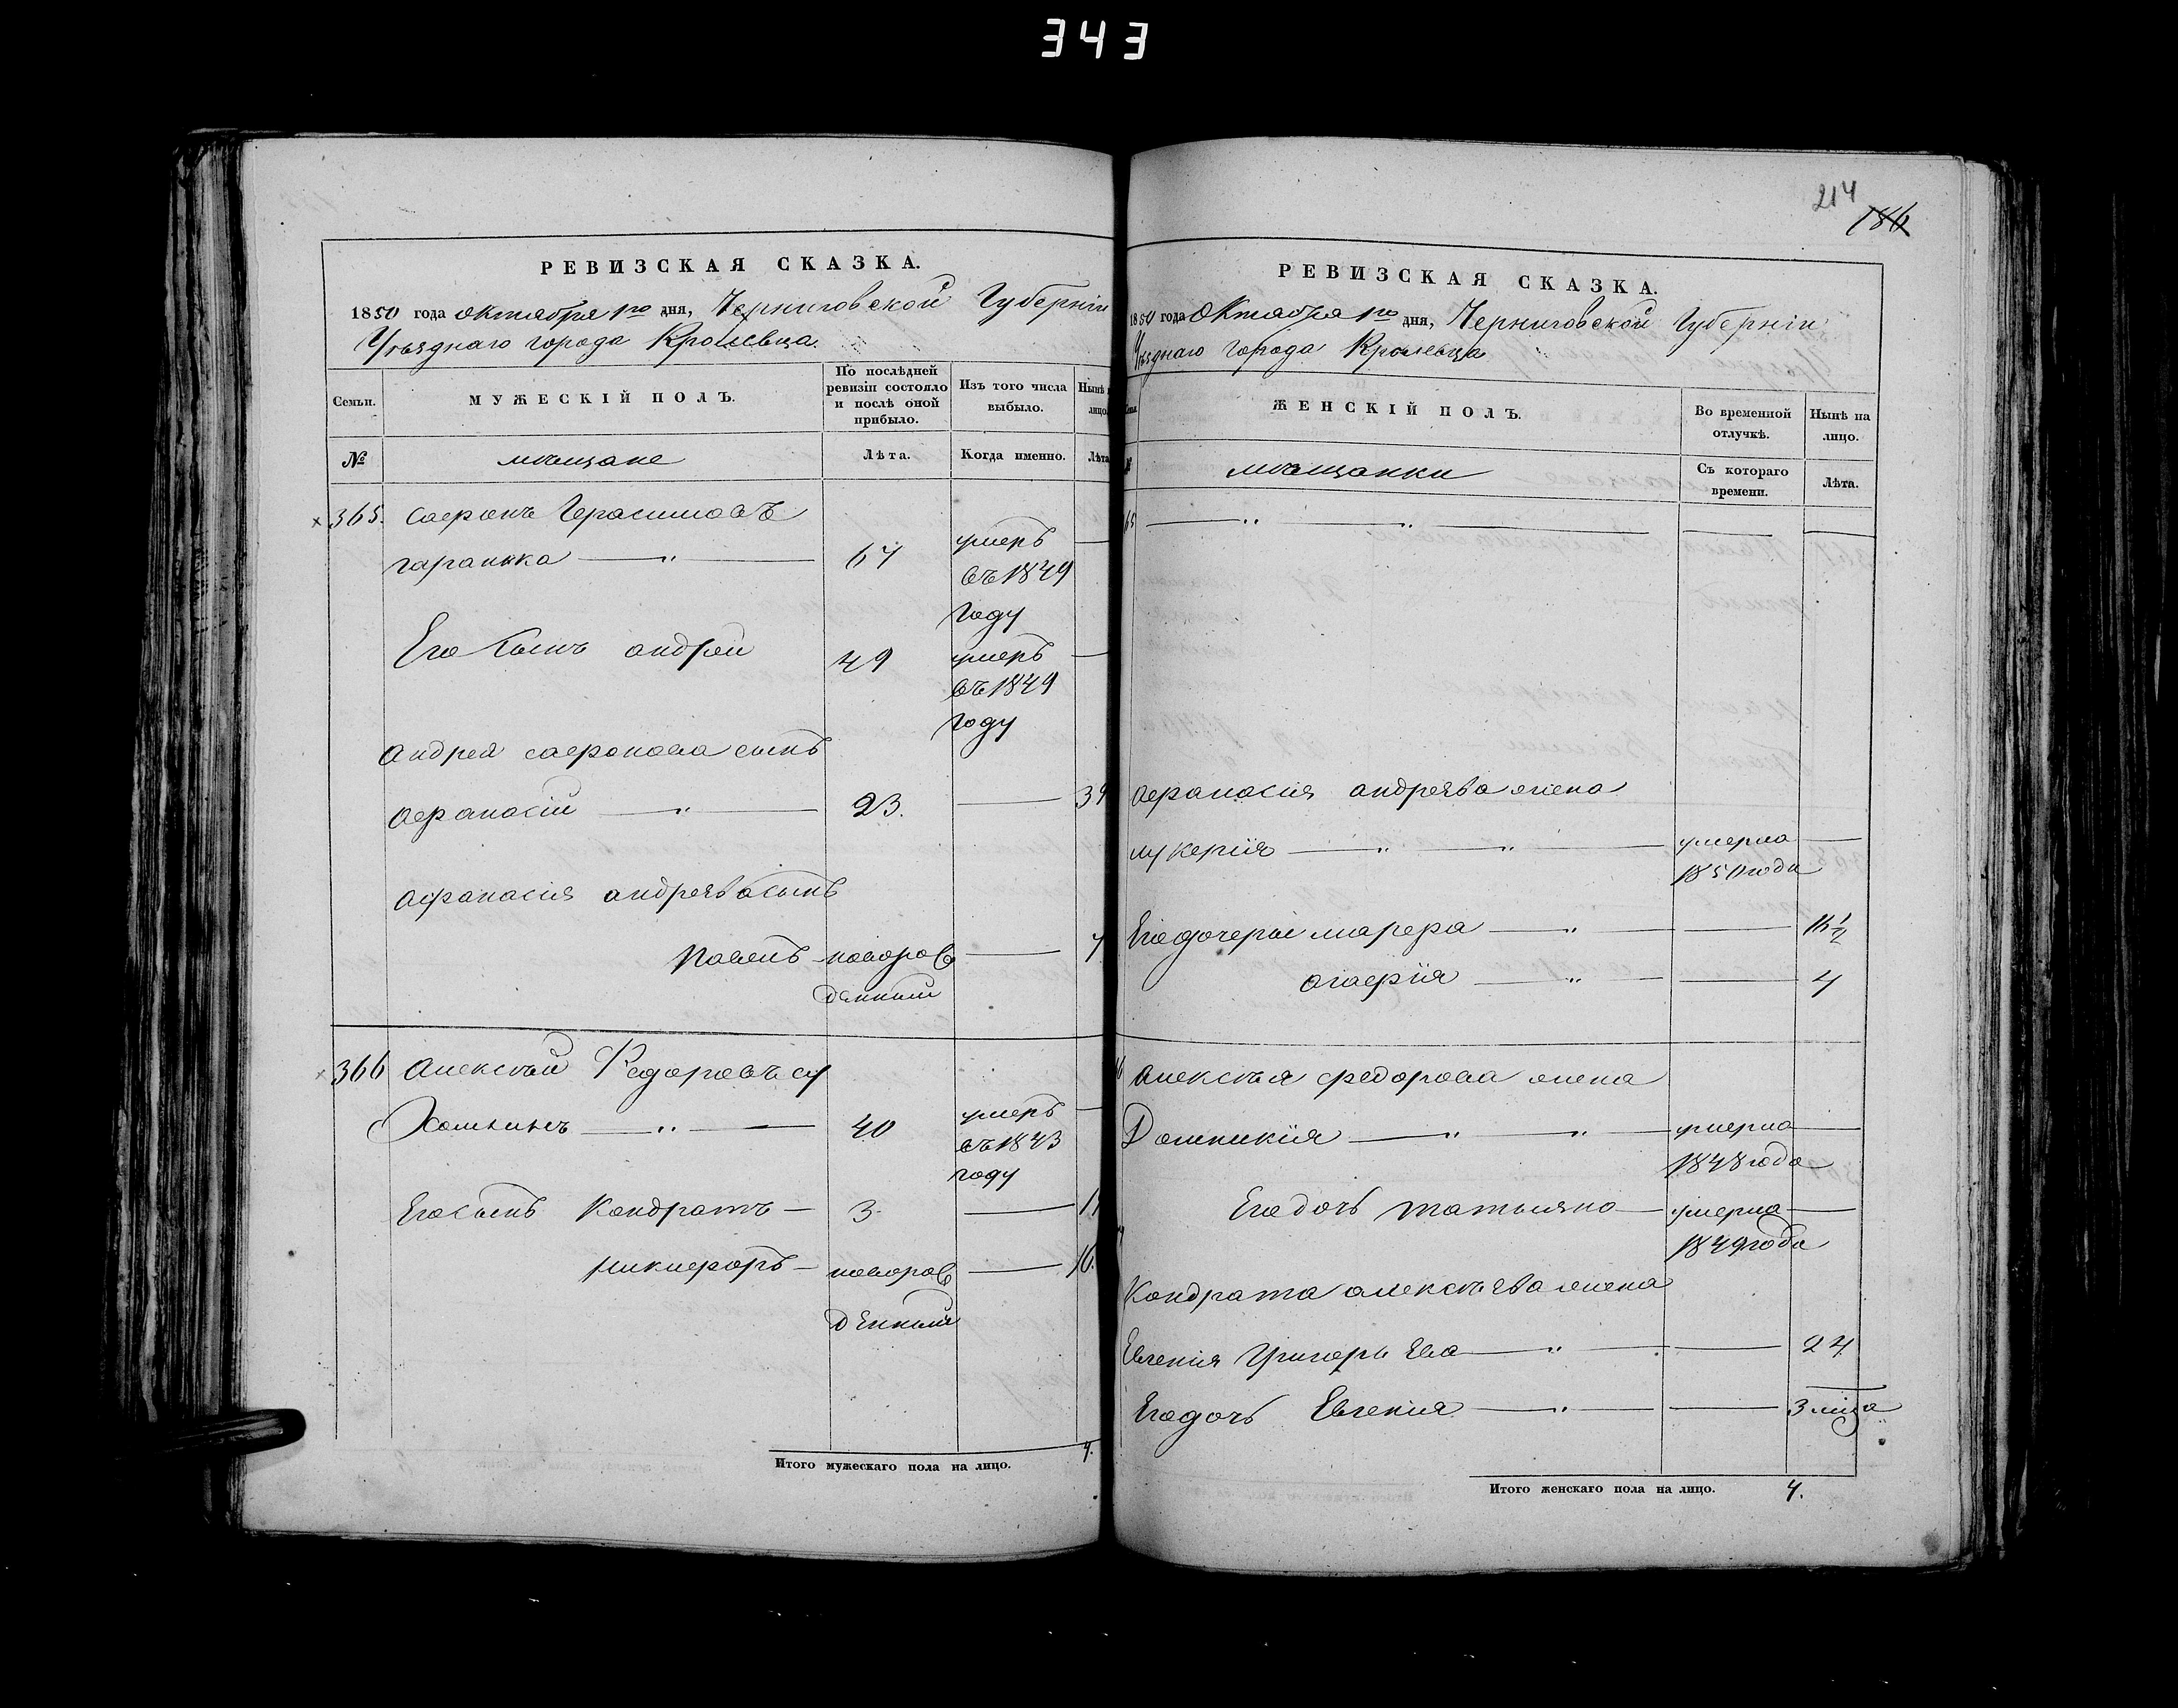 343
РЕВИЗСКАЯ СКАЗКА.
1850 года октября 1го дня, Черниговской Губерніи
Уѣзднаго города Кролевца.
Семьи.
МУЖЕСКІЙ ПОЛЪ.
По послѣдней ревизіи состояло и послѣ оной прибыло.
Изъ того числа выбыло.
Нынѣ
лицо
№
мѣщане
Лѣта.
Когда именно.
Лѣта
365. Сафонъ Герасимовъ
гаранька 67 умеръ
въ 1849
году
Его Сынъ андрей 49 умеръ
въ 1849
году
Андрея сафонова сынъ
афанасій 23. 39
афанасія андреева сынъ
Павелъ новорож 7
денный
366 Алексѣй Федоровъ су
Хомлинъ 40 умеръ
въ 1843
году
Его сынъ Кондратъ 3.
никифоръ новорож 16.
денный
Итого мужескаго пола на лицо. 4.
214
186
РЕВИЗСКАЯ СКАЗКА.
1850 года Октября 1го дня, Черниговской Губерніи
Уѣзднаго Города Кролевца
ЖЕНСКІЙ ПОЛЪ.
Во временной отлучкѣ.
Нынѣ на лицо.
мѣщанки
Съ котораго времени.
Лѣта.
65
афанасія андреева жена
лукерія умерла
1850 года
Его дочери марфа 1½
агафія 4
Алексѣя федорова жена
Домникія умерла
1848 года
Его дочь татьяна умерла
1849 года
Кондрата алексѣева жена
Евгенія Григорьева 24
Его дочь Евгенія 3 міца
Итого женскаго пола на лицо. 4.